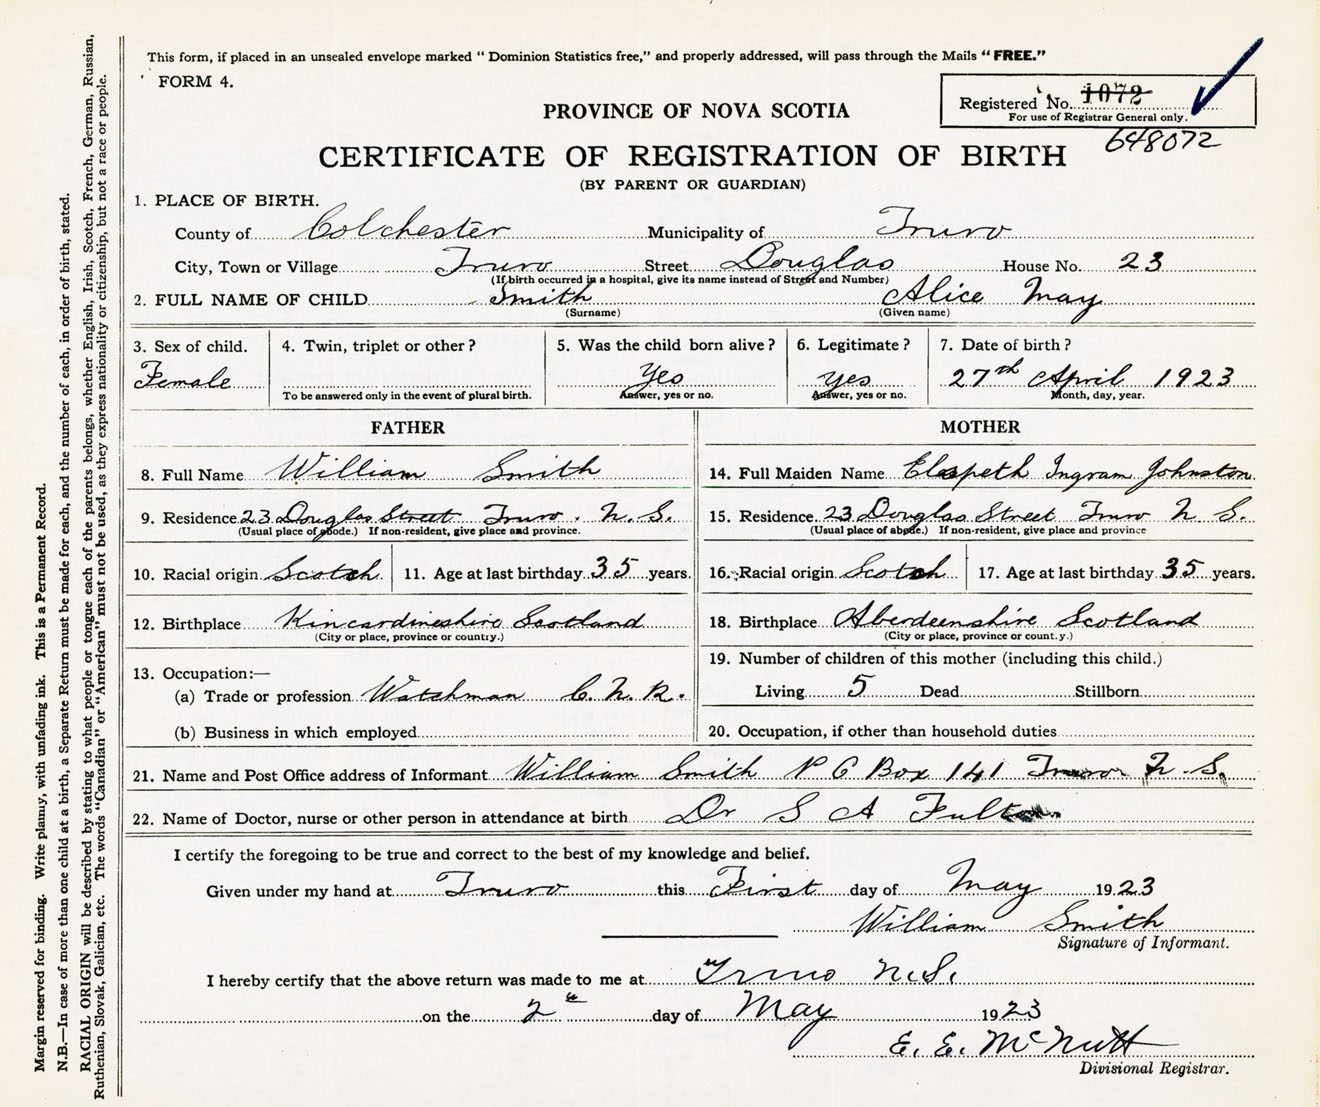 This form, if placed in an unsealed envelope marked “Dominion Statistics free,” and properly addressed, will pass through the Mails “FREE.”
FORM 4.
Registered No. 1072
For use of Registrar General only.
648072
PROVINCE OF NOVA SCOTIA
CERTIFICATE OF REGISTRATION OF BIRTH
(BY PARENT OR GUARDIAN)
1. PLACE OF BIRTH.
County of Colchester Municipality of Truro
City, Town or Village Truro Street Douglas House No. 23
(If birth occurred in a hospital, give its name instead of Street and Number)
2. FULL NAME OF CHILD Smith Alice May
(Surname) (Given name)
3. Sex of child. 4. Twin, triplet or other? 5. Was the child born alive? 6. Legitimate? 7. Date of birth?
Female Yes yes 27th April 1923
To be answered only in the event of plural birth. Answer, yes or no. Answer, yes or no. Month, day, year.
FATHER MOTHER
8. Full Name William Smith 14. Full Maiden Name Elespeth Ingram Johnston
9. Residence 23 Douglas Street Truro. N. S. 15. Residence 23 Douglas Street Truro N S.
(Usual place of abode.) If non-resident, give place and province. (Usual place of abode.) If non-resident, give place and province
10. Racial origin Scotch 11. Age at last birthday 35 years. 16. Racial origin Scotch 17. Age at last birthday 35 years.
12. Birthplace Kincardineshire Scotland 18. Birthplace Aberdeenshire Scotland
(City or place, province or country.) (City or place, province or count.y.)
13. Occupation:— 19. Number of children of this mother (including this child.)
(a) Trade or profession Watchman C. N. R. Living 5 Dead Stillborn
(b) Business in which employed 20. Occupation, if other than household duties
21. Name and Post Office address of Informant William Smith P O Box 141 Truro N. S.
22. Name of Doctor, nurse or other person in attendance at birth Dr S A Fulton
I certify the foregoing to be true and correct to the best of my knowledge and belief.
Given under my hand at Truro this First day of May 1923
William Smith
Signature of Informant.
I hereby certify that the above return was made to me at Truro N.S.
on the 2nd day of May 1923
E. E. McNutt
Divisional Registrar.
Margin reserved for binding. Write plainly, with unfading ink. This is a Permanent Record.
N.B.—In case of more than one child at a birth, a Separate Return must be made for each, and the number of each, in order of birth, stated.
RACIAL ORIGIN will be described by stating to what people or tongue each of the parents belongs, whether English, Irish, Scotch, French, German, Russian,
Ruthenian, Slovak, Galician, etc. The words “Canadian” or “American” must not be used, as they express nationality or citizenship, but not a race or people.